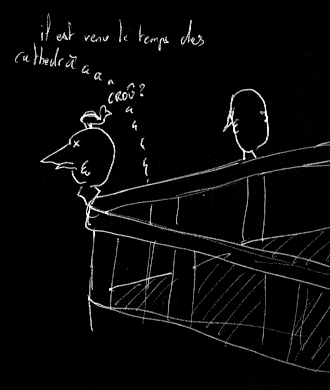 il est venu le temps des
cathedrâ a a a
CROÛ?
a
a
a
a